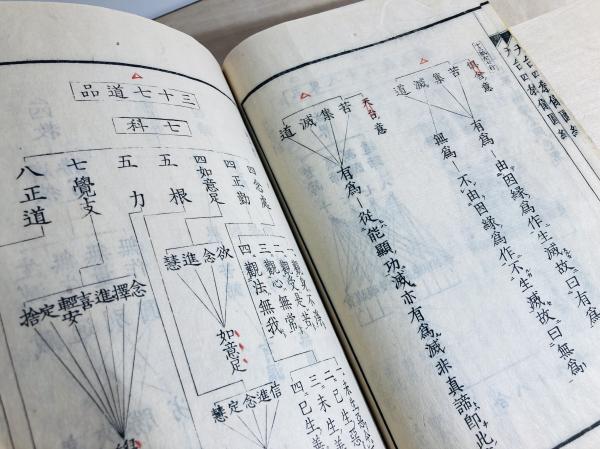 倶舍意
苦集滅道
有爲―由因縁爲作生滅故曰有爲
無爲―不由因縁爲作不生滅故曰無爲
天台意
苦集滅道
有爲―從能顯功滅亦有爲滅非真諦即此
三十七道品
七科
四念處
四正勤
四如意足
五根
五力
七覺支
八正道
一觀身不淨
二觀受是苦
三觀心無常
四觀法無我
三未生善
四已生善
欲念進慧
如意足
信進念定慧
念擇進喜輕安定捨